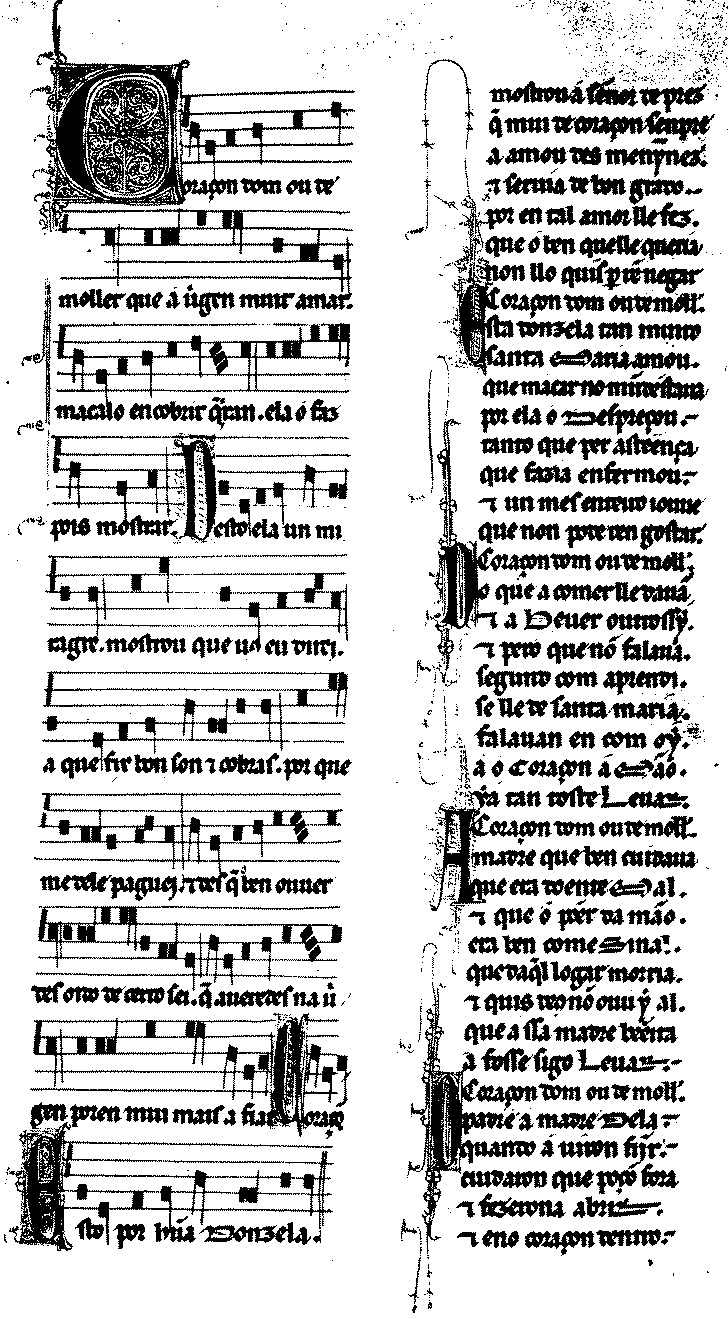 Coraçon dom ou de
moller que a uirgen muit amar.
macalo encobrir q̃ran. ela o faz
pois mostrar. Desto ela un mi
ragre. mostrou que uos eu direi.
a que fiz bon son ⁊ cobras. por que
me dele paguei. ⁊ des q̃ ben ouuer
des oydo de certo sei. q̃ aueredes na uir
gen poren mui mais a fiar Coraçõ
Esto por hũa Donzela.
mostrou á sẽnor de pres
q̃ mui de coraçon senpre
a amou des menỹnez.
⁊ seruia de bon grado.
por en tal amor lle fez.
que o ben quelle queria
non llo quis p̃ren negar
Coraçon dom ou de moll.
Esta donzela tan muito
santa Maria amou.
que macar no mũdestaua
por ela o Despreçou.
tanto que per astẽença
que fazia enfermou.
⁊ un mes enteiro iouue
que non pode ren gostar.
Coraçon dom ou de moll.
Do que a comer lle dauã
⁊ a Beuer outrossỹ.
⁊ pero que nõ falaua.
segund com aprendi.
se lle de santa maria.
falauan en com oỹ.
a o Coraçon a Mão.
ỹa tan toste Leuar.
Coraçon dom ou de moll.
A madre que ben cuidaua
que era doente Mal.
⁊ que o per da mão.
era ben come Sinal.
que daq̃l logar morria.
⁊ quis deo nõ ouuỹ al.
que a ssa madre bẽeita
a fosse sigo Leuar.
Coraçon dom ou de moll.
O padre a madre Dela
quando a uiron fijr.
cuidaron que poçõ fora
⁊ fezerona abrir.
⁊ eno coraçon dentro.